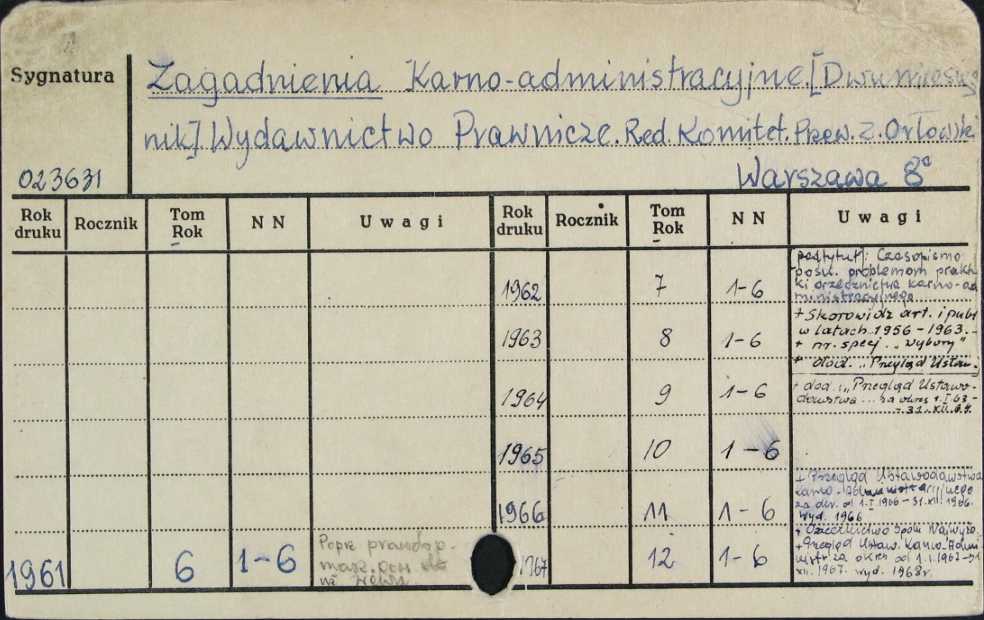 Sygnatura
Zagadnienia Karno-administracyjne. [Dwumiesięcz
nik] Wydawnictwo Prawnicze. Red. Komitet. Przew. Z. Orłowski
023631
Warszawa 8°
Rok druku Rocznik Tom Rok N N Uwagi Rok druku Rocznik Tom Rok N N Uwagi
1962 7 1-6 [podtytuł]: Czasopismo
pośw. problemom prakty
ki orzecznictwa karno-ad
ministracyjnego
1963 8 1-6 + Skorowidz art. i publ
w latach 1956-1963.-
+ nr. specj. „Wybory"
+ dod. „Przegląd Ustaw.
1964 9 1-6 + dod. „Przegląd Ustawo-
dawstwa ... za okres 1.I.63 -
- 31.XII.64.
1965 10 1-6
1966 11 1-6 + Przegląd Ustawodawstwa
karno-administracyjnego
za okr. od 1.I 1966-31.XII 1966.
Wyd. 1966
1961 6 1-6 Popr.
1967 12 1-6 + Orzecznictwo Sądu Najwyż.
+ Przegląd Ustaw. Karno-Admi
nistr za okres od 1.I.1967-31
XII. 1967. wyd. 1968r.